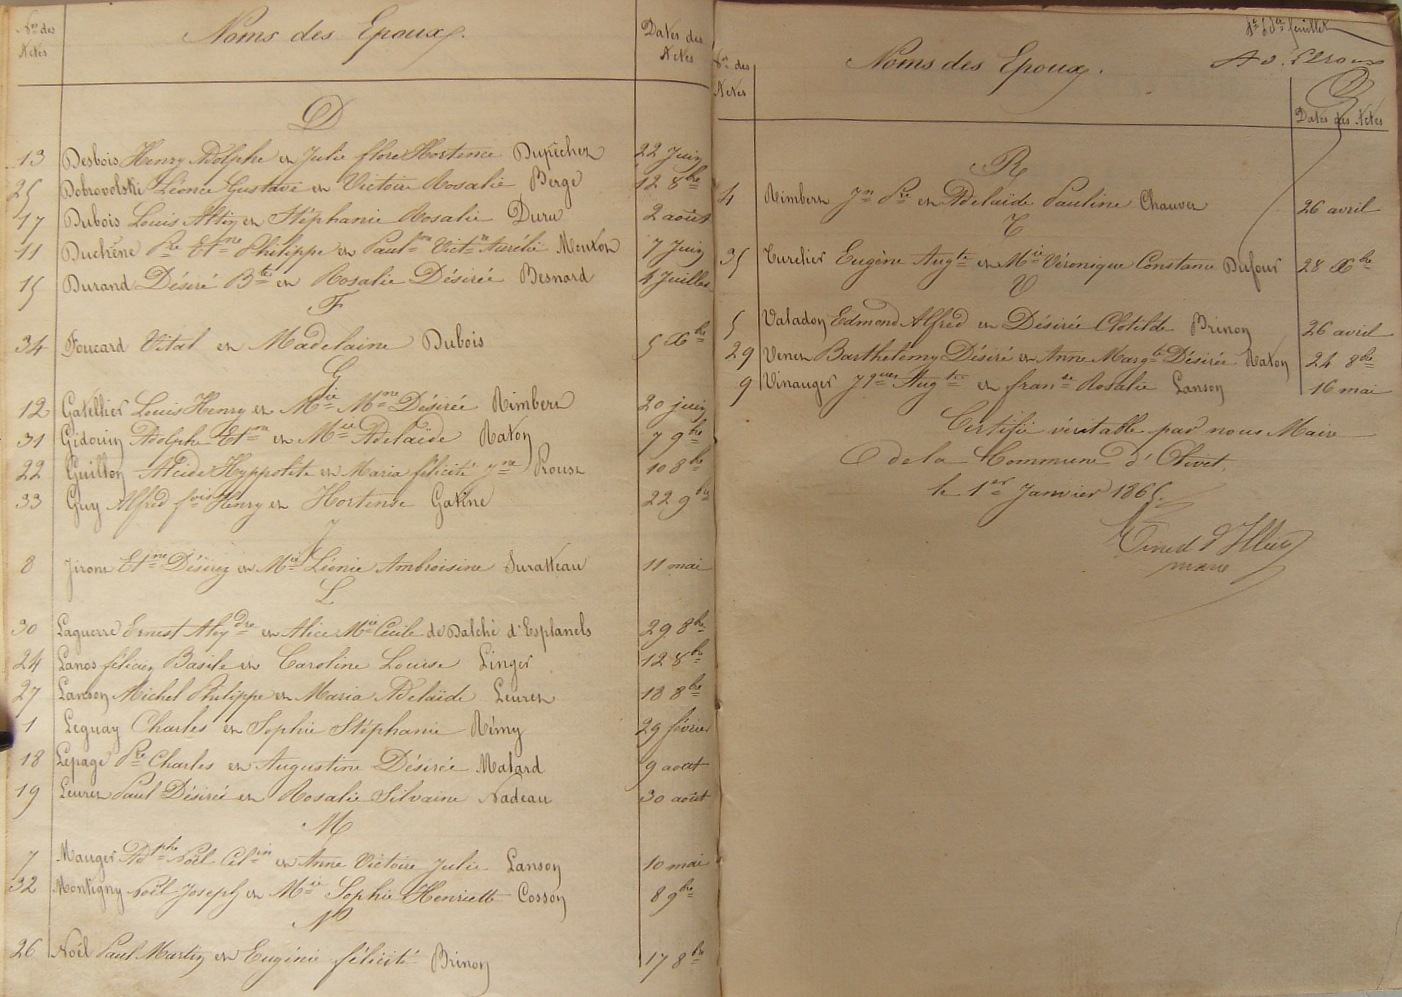 Nos des Actes
Noms des Epoux.
Dates des Actes
D
13 Desbois Henry Adolphe et Julie flore Hortence Dupêcher 22 Juin
25 Dobrovolski Léonce Gustave et Victoire Rosalie Berge 12 8bre
17 Dubois Louis et Stéphanie Rosalie Duru 2 août
11 Duchêne Pre Etne Philippe et Aurélie 7 Juin
15 Durand Désiré Bte et Rosalie Désirée Besnard 4 Juillet
F
34 Foucard Vital et Madelaine Dubois 5 Xbre
G
12 Gatellier Louis Henry et Mie Désirée Rimbert 20 juin
31 Gidouin Adolphe Etne et Mie Adelaïde Raton 7 9bre
22 Guillon Alcide Hyppolite et Maria félicité Roux 10 8bre
33 Guy Alfred fois Henry et Hortense Gatine 22 9bre
J
8 Etne Désiré et Mie Léonie Ambroisine Suratteau 11 mai
L
30 Laguerre Ernest Alexdre et Alice Mie Cécile de Dalché d'Esplanels 29 8bre
24 Lanos félicien Basile et Caroline Louise Linger 12 8bre
27 Lanson Michel Philippe et Maria Adelaïde Leuret 18 8bre
1 Leguay Charles et Sophie Stéphanie Rémy 29 février
18 Lepage Pre Charles et Augustine Désirée Malard 9 août
19 Leuret Paul Désiré et Rosalie Silvaine Nadeau 30 août
M
7 Mauger Adphe Noël et Anne Victoire Julie Lanson 10 mai
32 Montigny Noël Joseph et Mie Sophie Henriette Cosson 8 9bre
N
26 Noël Paul Martin et Eugénie félicité Brinon 17 8bre
feuillet
Nos des Actes
Noms des Epoux.
Dates des Actes
R
4 Rimbert Jn Pre et Adelaïde Pauline Chauvet 26 avril
T
35 Turelier Eugène Augte et Mie Véronique Constance Dufour 28 Xbre
V
5 Valadon Edmond Alfred et Désirée Clotilde Brinon 26 avril
29 Venet Barthelemy Désiré et Anne Margte Désirée Raton 24 8bre
9 Vinauger Jques Augte et franse Rosalie Lanson 16 mai
Certifié véritable par nous Maire
de la Commune d'Olivet,
le 1er Janvier 1865.
maire